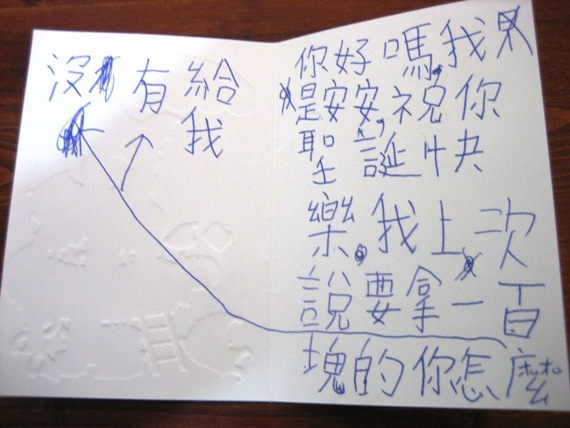 你好嗎,我
是安安,祝你
聖誕快
樂。我上次
說要拿一百
塊的你怎麼
沒有給
我